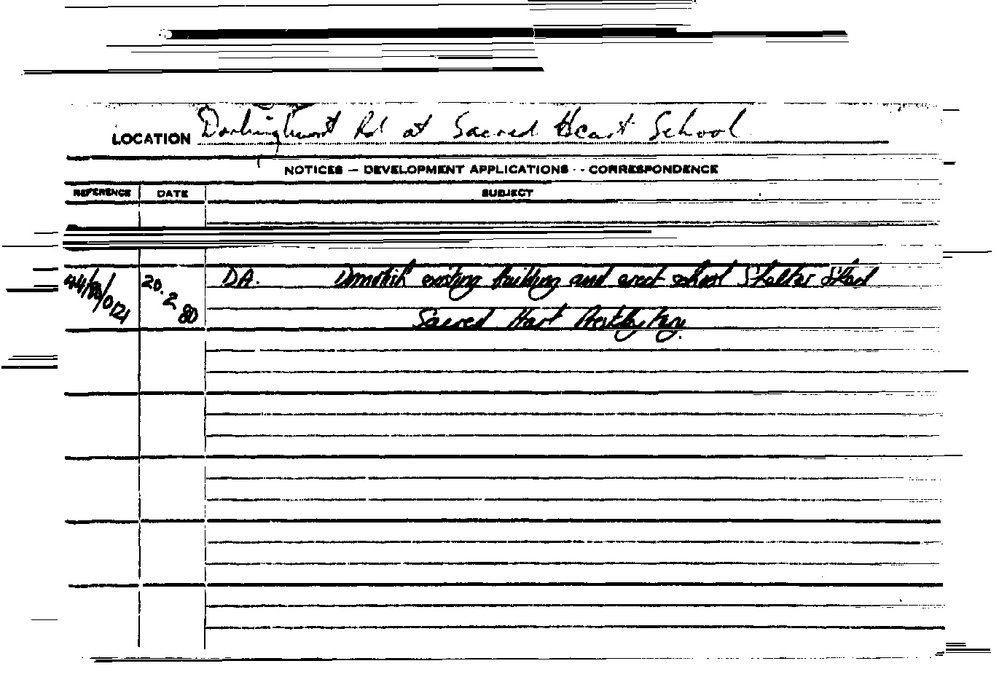 LOCATION Darlinghurst Rd at Sacred Heart School
NOTICES — DEVELOPMENT APPLICATIONS - - CORRESPONDENCE
REFERENCE DATE SUBJECT
44/80/0121 20.2.80 D.A. Demolish existing building and erect school Shelter Shed
Sacred Hart Presbytery.